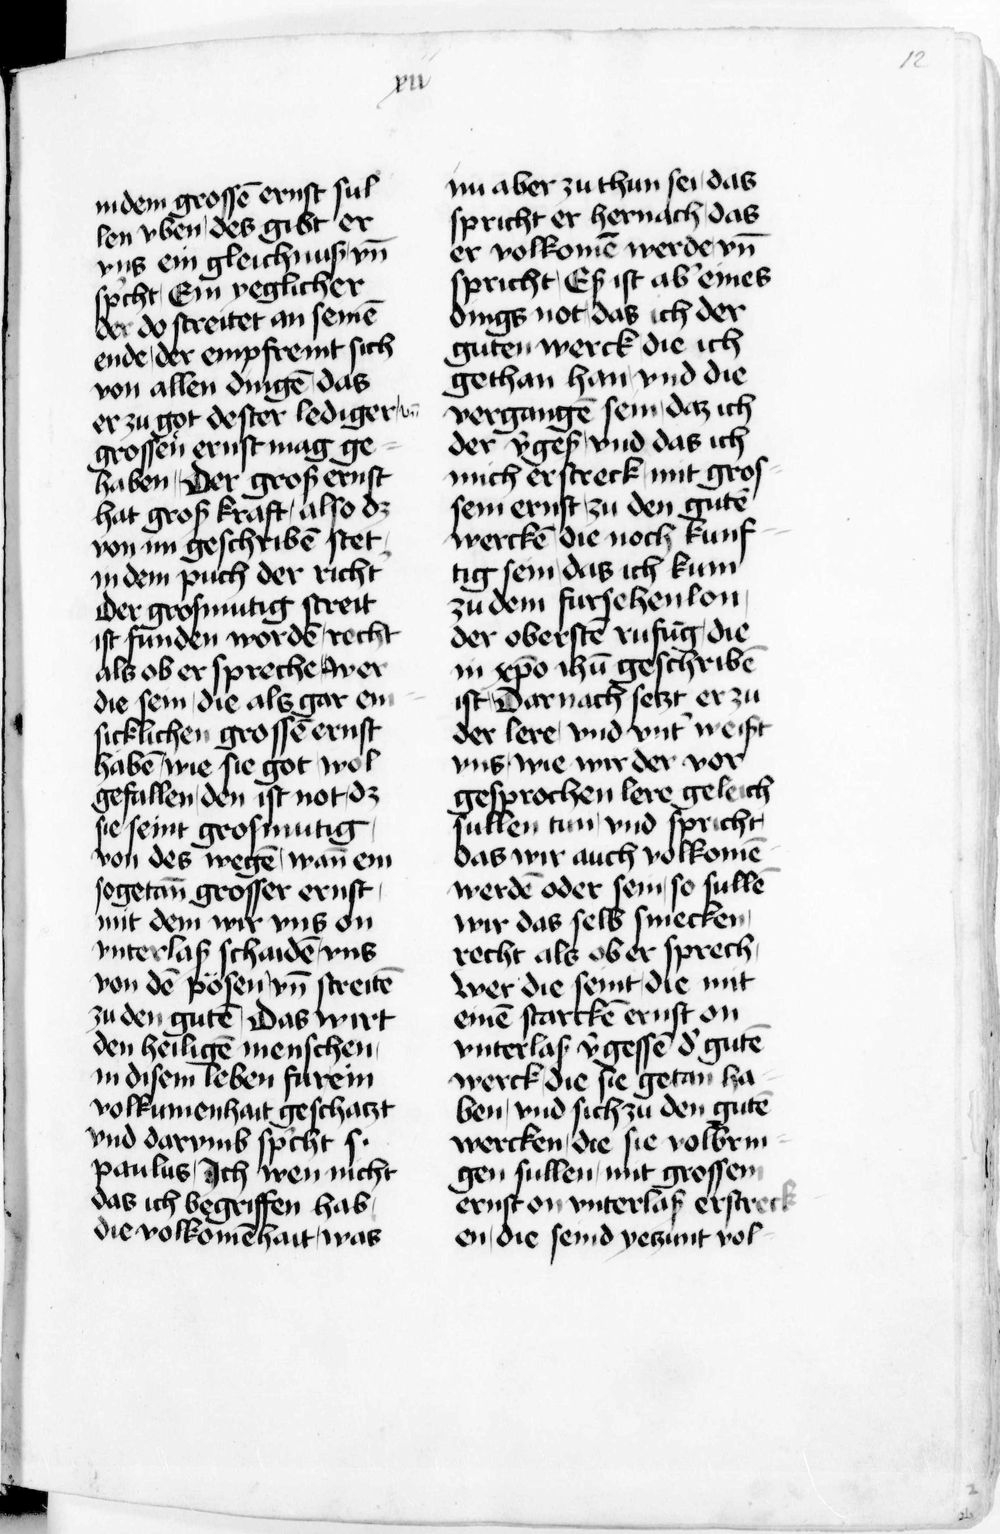 12
xii
in dem grossē ernst sul
len vben / des gibt er
vns ein gleichnuß / vn̄
sp̄cht / Ein yeglicher
der do streitet an seinē
ende / der empfremt sich
von allen dingē / das
er zu got dester lediger / vn̄
grossen ernst mag ge=
haben / Der groß ernst
hat groß kraft / also dz
von im geschribē stet /
in dem puch der richt'
Der grosmutig streit
ist funden wordē / recht
als ob er spreche / wer
die sein / die als gar em=
sicklichen grossē ernst
habē / wie sie got wol
gefallen / den ist not / dz
sie seint grosmutig /
von des wegē / wan̄ ein
sogetan̄ grosser ernst /
mit dem wir vns on
vnterlaß schaidē / vns
von dē pösen / vn̄ streitē
zu den gutē / Das wirt
den heiligē menschen /
in disem leben fur ein
volkumenhait geschatzt
vnd darvmb sp̄cht s.
paulus / Ich wen nicht
das ich begriffen hab /
die volkomēhait / was
nu aber zu thun sei / das
spricht er hernach / das
er volkomē werde / vn̄
spricht / Eß ist ab' eines
dings not / das ich der
guten werck die ich
gethan han / vnd die
vergangē sein / daz ich
der v̄geß / vnd das ich
mich erstreck / mit gros=
sem ernst / zu den gutē
werckē die noch kunf=
tig sein / das ich kum
zu dem fursehen lon /
der oberstē rufūg / die
in xp̄o ihū geschribē
ist / Darnach setzt er zu
der lere / vnd vnt' weist
vns / wie wir der vor
gesprochen lere geleich
sullen tun / vnd spricht /
das wir auch volkomē=
werdē oder sein / so sullē
wir das selb smecken /
recht als ob er sprech /
Wer die seint / die mit
einē starckē ernst on
vnterlaß v̄gessē d' gutē
werck / die sie getan ha=
ben / vnd sich zu den gutē
wercken / die sie volbrin=
gen sullen / mit grossem
ernst on vnterlaß erstreck
en / die seind yetzunt vol=